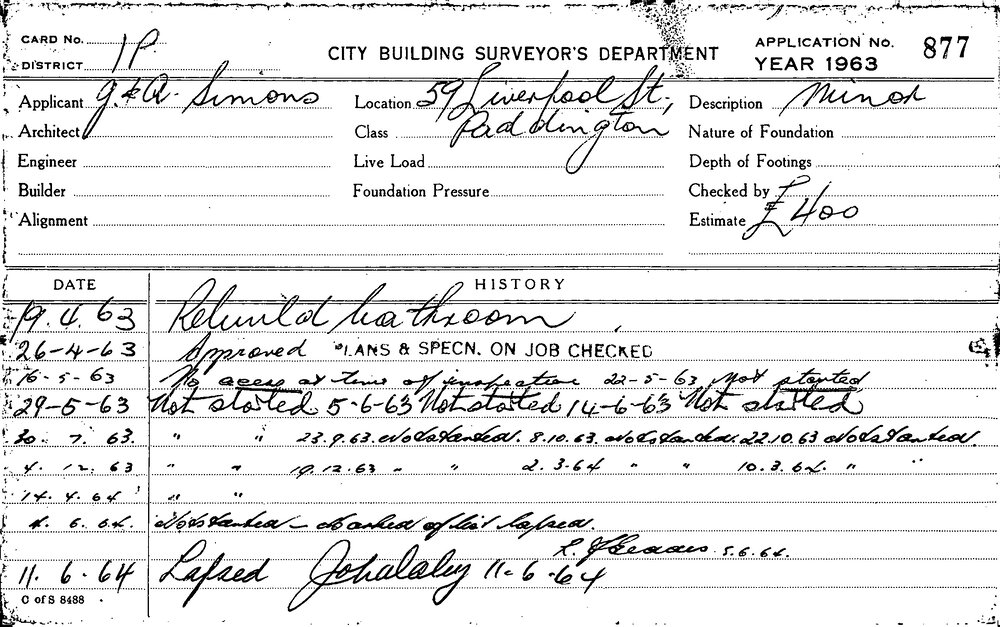 CARD No. 1P
DISTRICT
CITY BUILDING SURVEYOR'S DEPARTMENT
APPLICATION No. 877
YEAR 1963
Applicant G. & A. Simons Location 59 Liverpool St, Description Minor
Architect Class Paddington Nature of Foundation
Engineer Live Load Depth of Footings
Builder Foundation Pressure Checked by
Alignment Estimate £400
DATE HISTORY
19.4.63 Rebuild bathroom
26-4-63 Approved PLANS & SPECN. ON JOB CHECKED
16-5-63 No access at time of inspection 22-5-63 Not started
29-5-63 Not started 5-6-63 Not started 14-6-63 Not started
30. 7. 63. " " 23.9.63. Not started. 8.10.63. Not started. 22.10.63 Not started.
4. 12. 63 " " 19.12.63 " " 2.3.64 " " 10.3.64. " "
14. 4. 64 " "
4. 6. 64. Not started – marked off list lapsed.
5.6.64.
11. 6. 64 Lapsed 11-6-64
C of S 8488